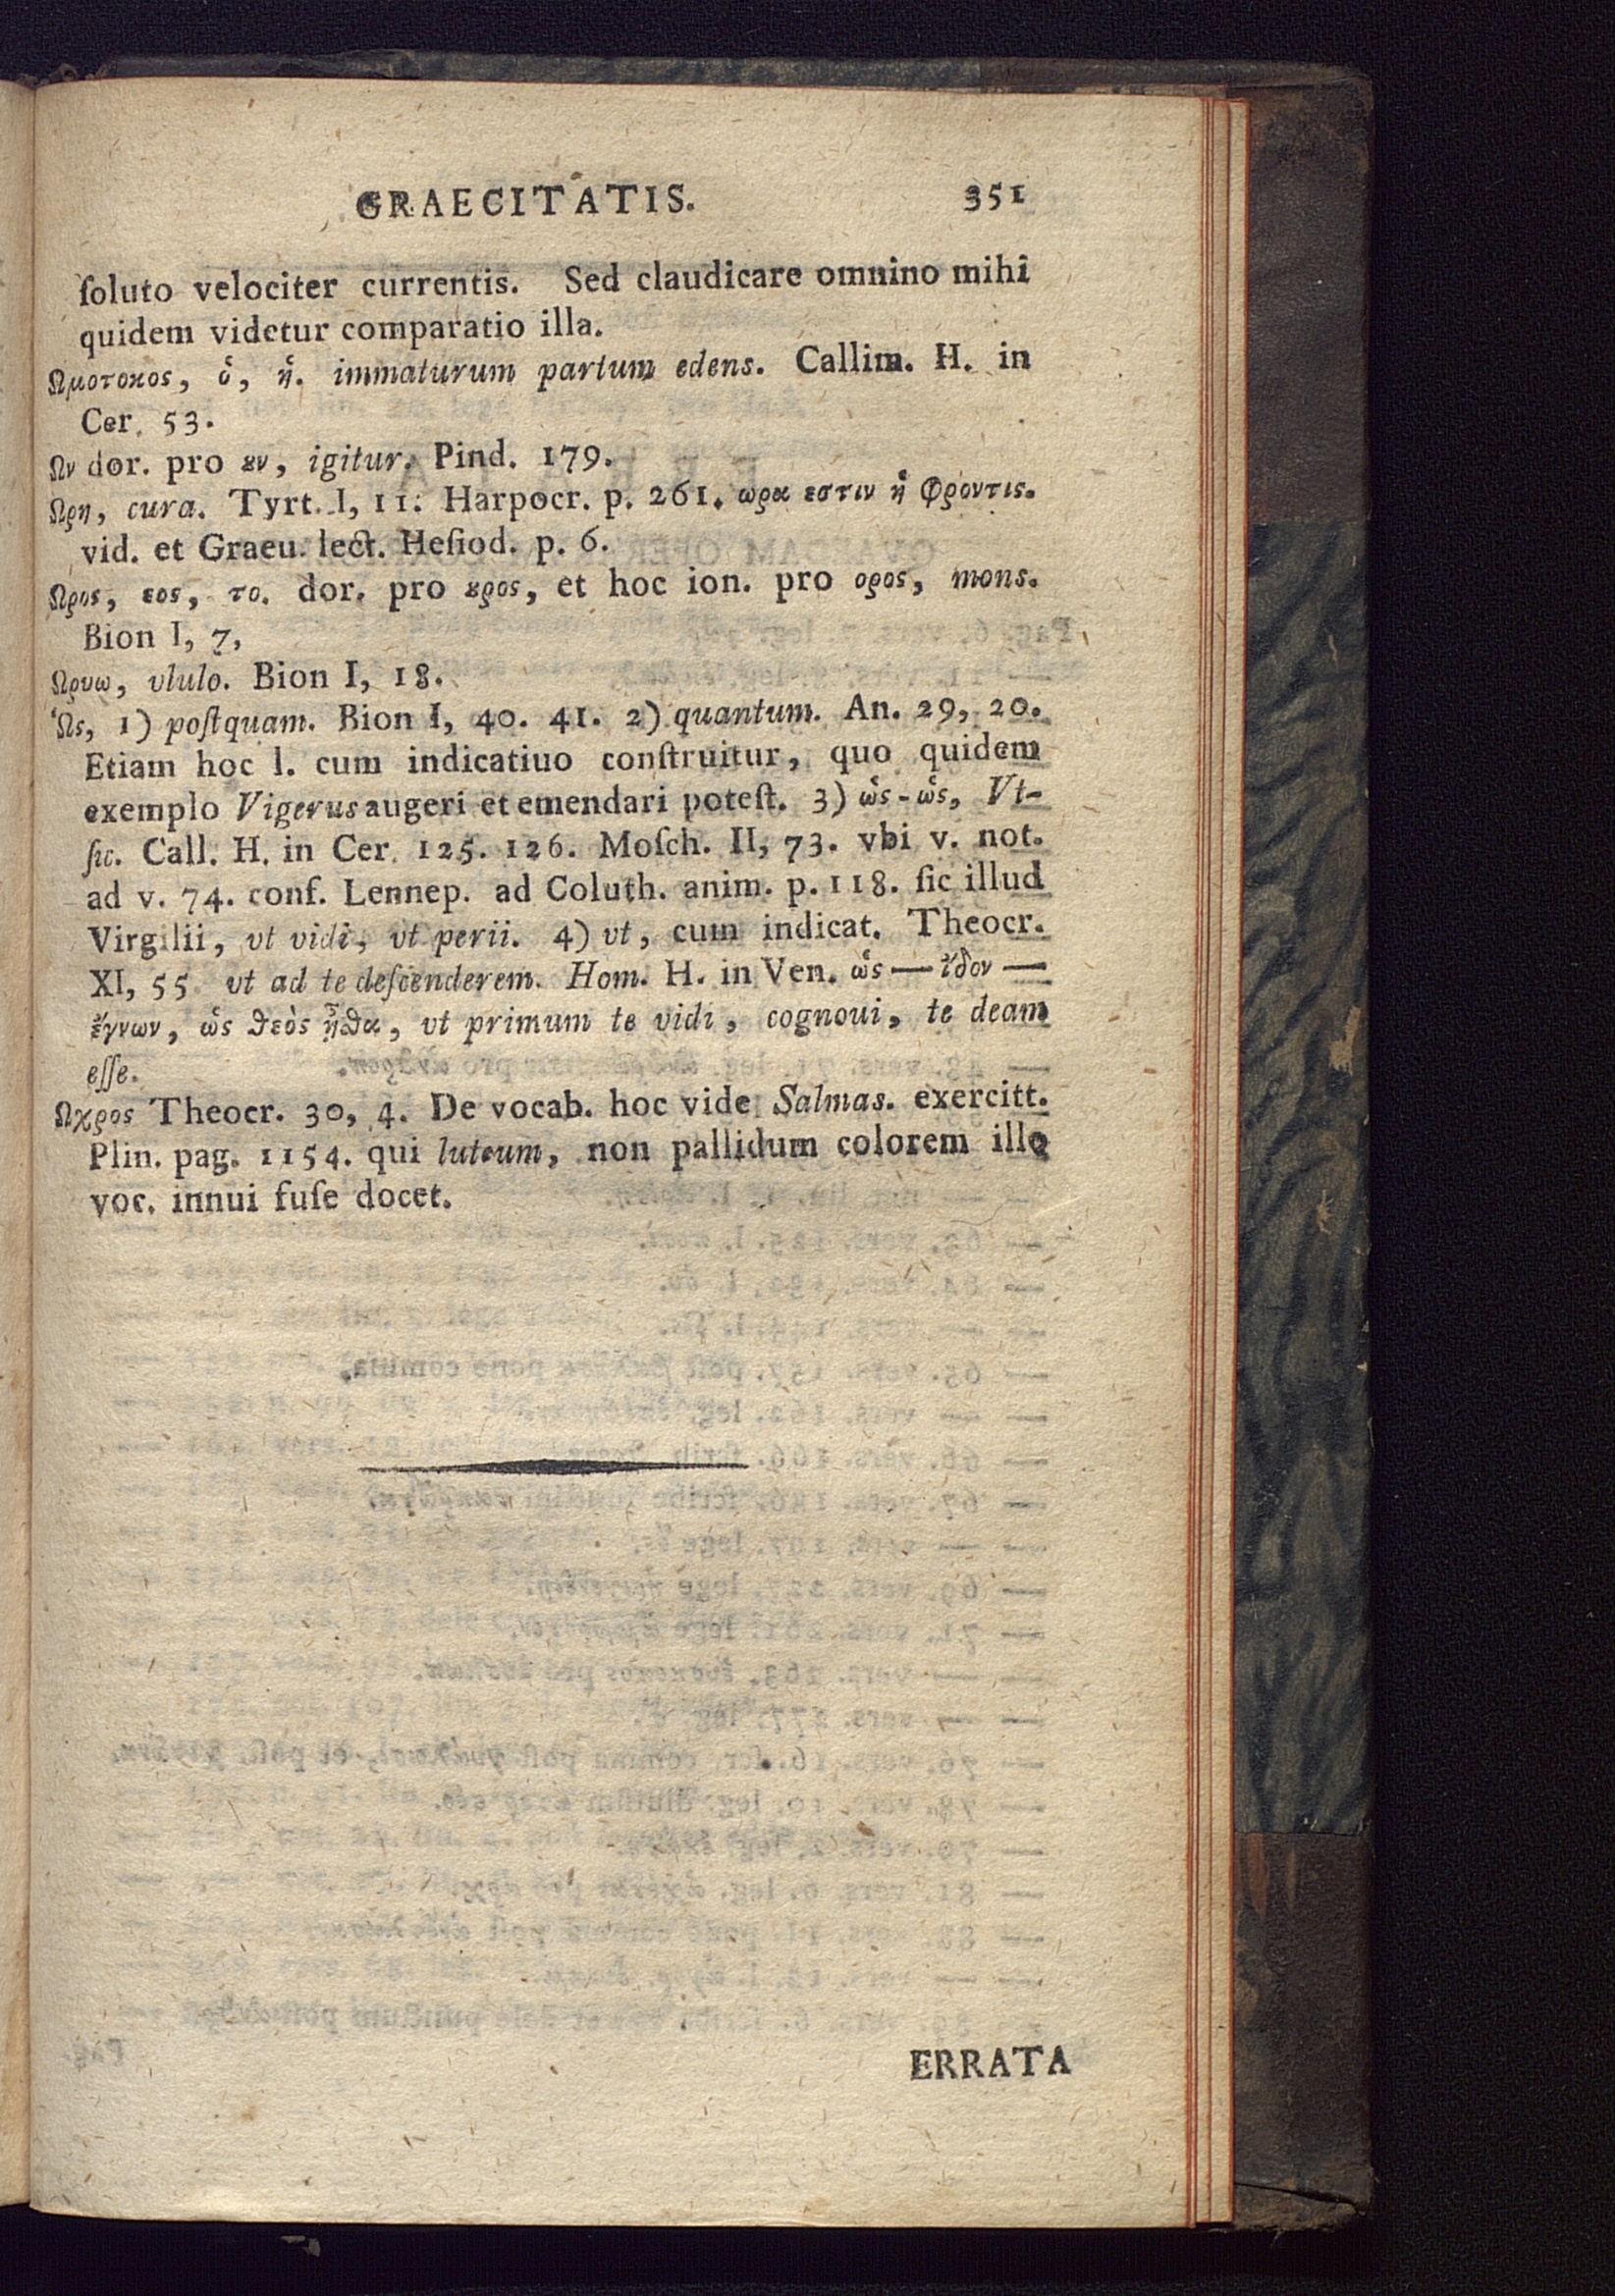 GRAECITATIS. 351
ſoluto velociter currentis. Sed claudicare omnino mihi
quidem videtur comparatio illa.
Ωμοτοκος, ὁ, ἡ. immaturum partum edens. Callim. H. in
Cer. 53.
Ων dor. pro ȣν, igitur. Pind. 179.
Ωρη, cura. Tyrt. I, 11. Harpocr. p. 261. ωρα εστιν ἡ Φροντις.
vid. et Graeu. lect. Heſiod. p. 6.
Ωρος, εος, το. dor. pro ȣρος, et hoc ion. pro ορος, mons.
Bion I, 7,
Ωρυω, vlulo. Bion I, 18.
Ὡς, 1) poſtquam. Bion I, 40. 41. 2) quantum. An. 29, 20.
Etiam hoc l. cum indicatiuo conſtruitur, quo quidem
exemplo Vigerus augeri et emendari poteſt. 3) ὡς-ὡς, Vt-
ſic. Call. H. in Cer. 125. 126. Moſch. II, 73. vbi v. not.
ad v. 74. conf. Lennep. ad Coluth. anim. p. 118. ſic illud
Virgilii, vt vidi, vt perii. 4) vt, cum indicat. Theocr.
XI, 55 vt ad te deſcenderem. Hom. H. in Ven. ὡς — ἴδον —
ἔγνων, ὡς θεὸς ἦσθα, vt primum te vidi, cognoui, te deam
eſſe.
Ωχρος Theocr. 30, 4. De vocab. hoc vide Salmas. exercitt.
Plin. pag. 1154. qui luteum, non pallidum colorem illo
voc. innui fuſe docet.
ERRATA